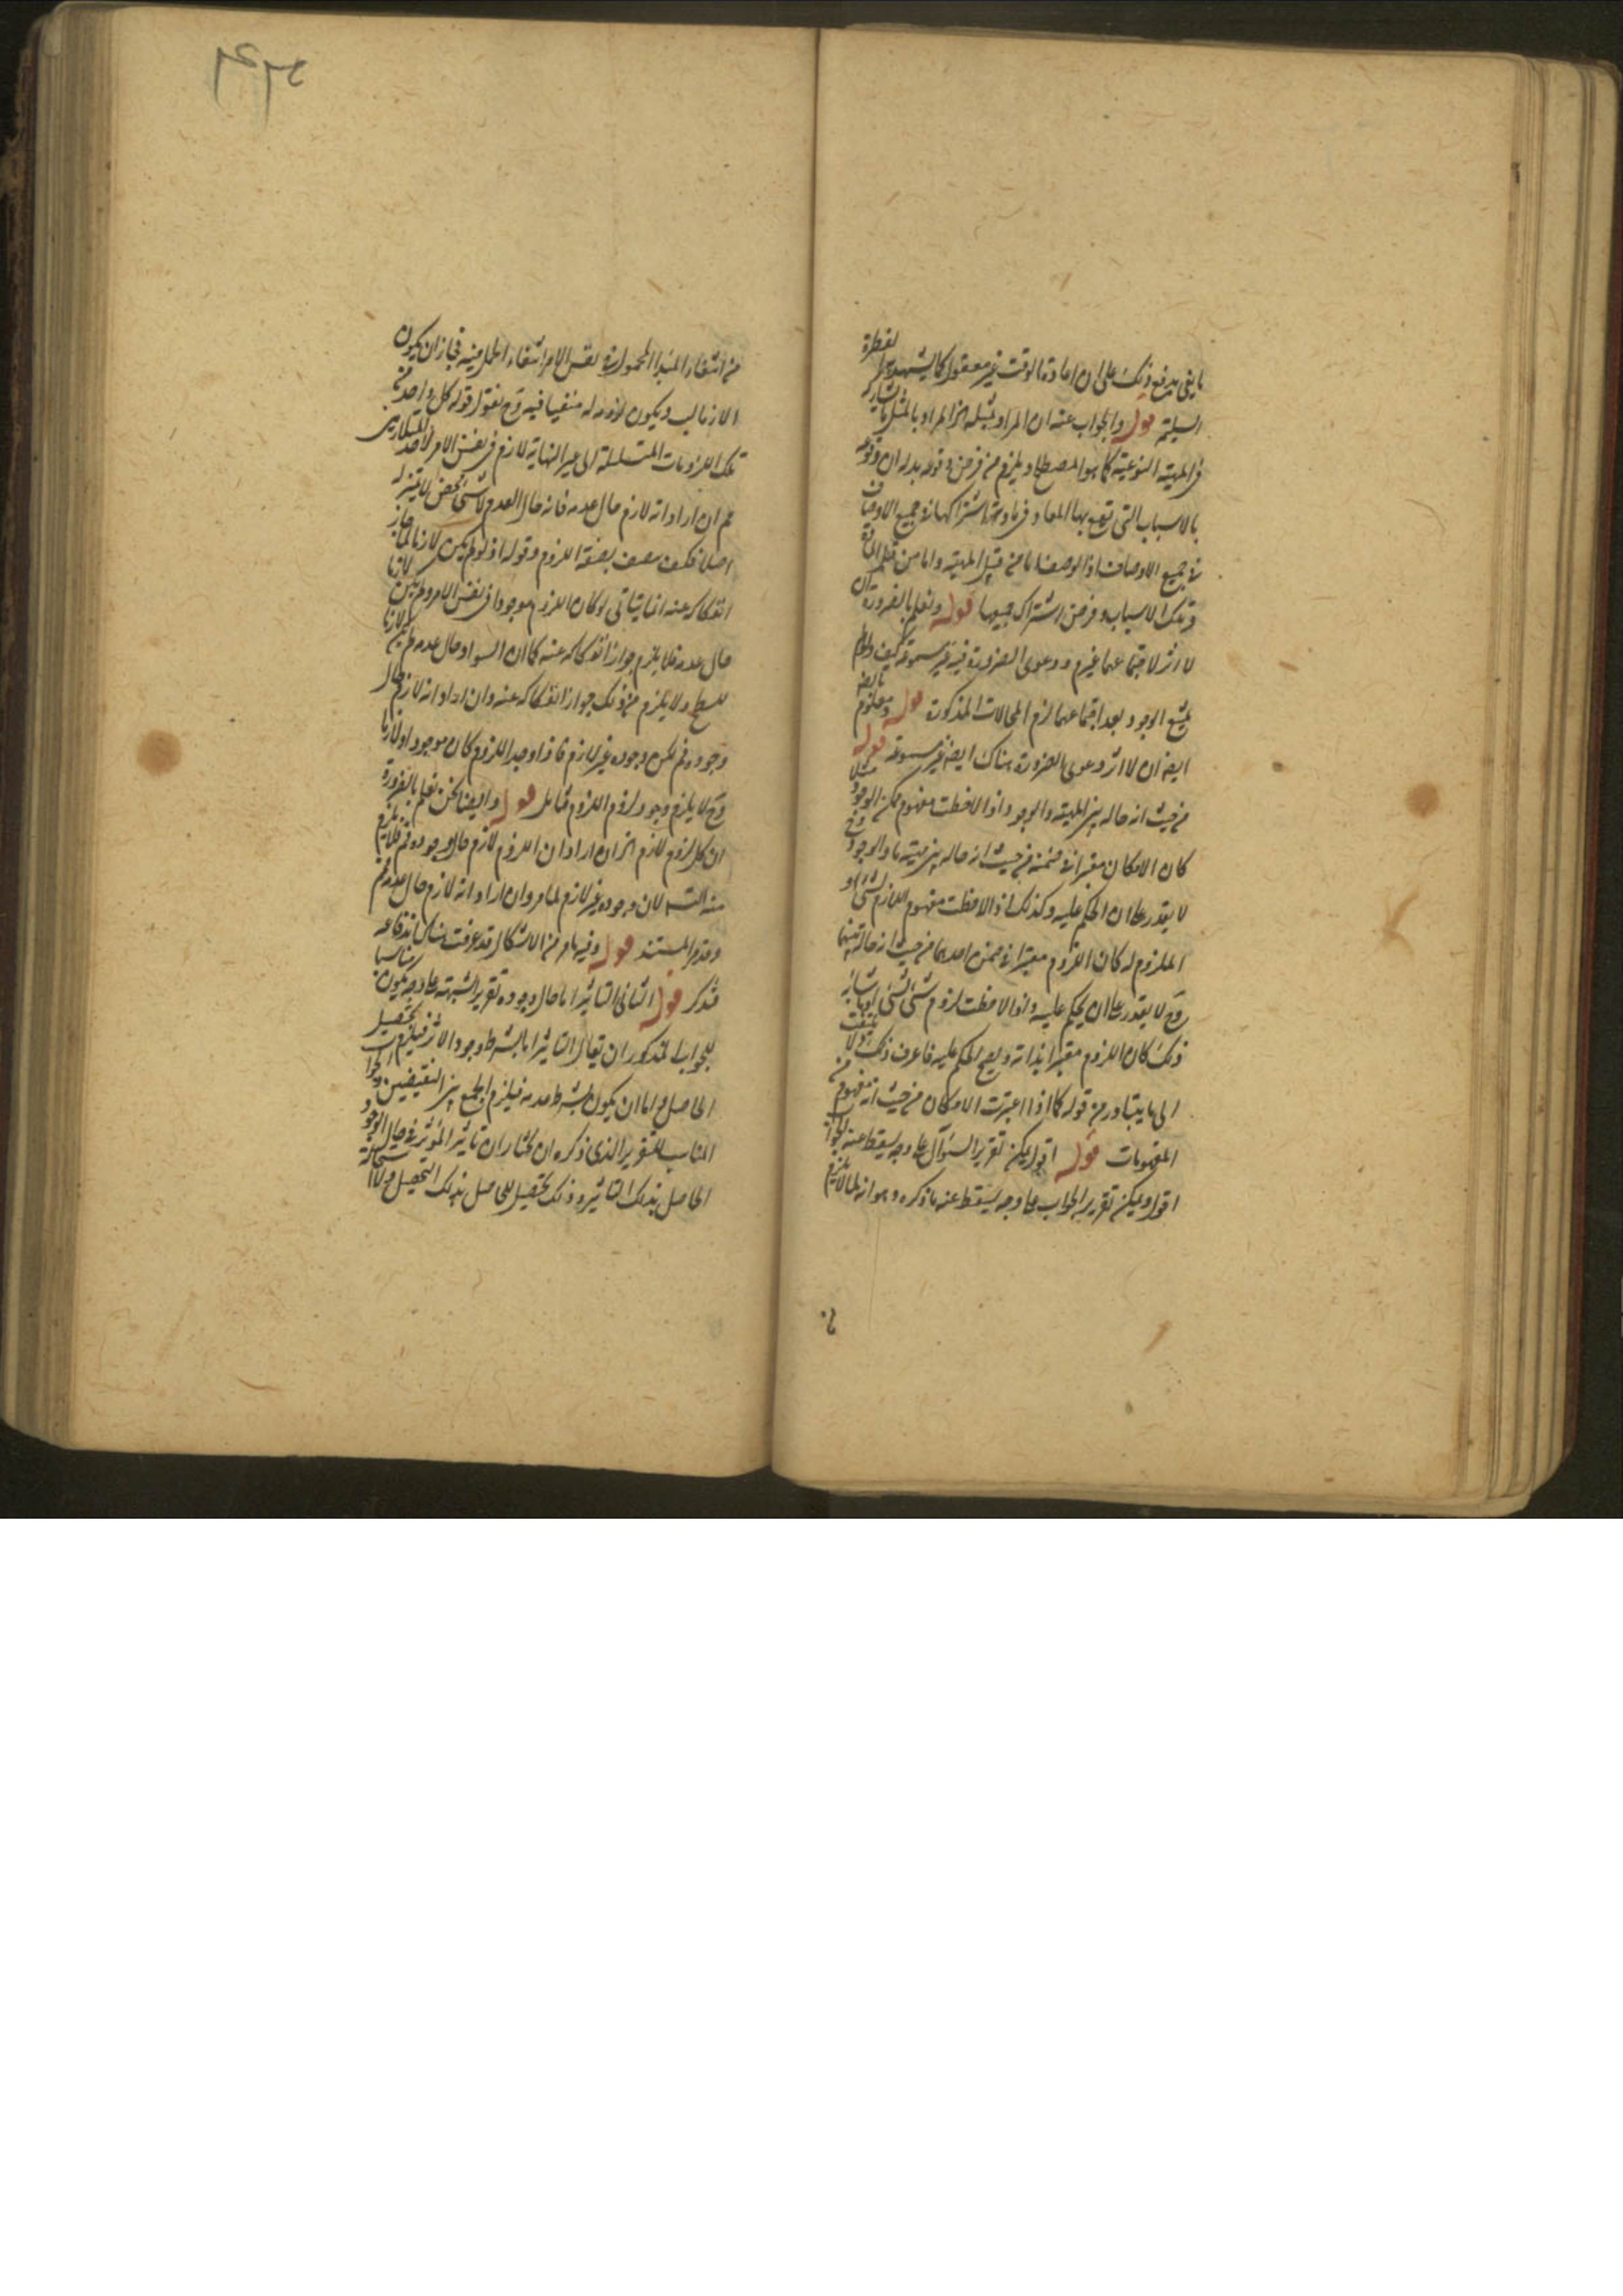 ما ينفى يدفع ذلك على ان اعادة الوقت غير معقول كما يشهد به الفطرة
السليمة قوله والجواب عنه ان المراد بمثله الخ المراد بالمثل ما يشاركه
فى المهية النوعية كما هو المصطلح ويلزم من فرض وقوعه بدله ان وقوعه
بالاسباب التى تقع بها المعاد اشتراكهما فى جميع الاوصاف
فى جميع الاوصاف اذ الوصف اما من قبل المهية واما من قبل المادة
وتلك الاسباب وفرض اشتراك جميعها قوله ونعلم بالضرورة ان
لا اثر لاجتماعهما غيرم ودعوى الضرورة فيه غير مسموعة كيف ولم
يمتنع الوجود بعد اجتماعهما لزم المحالات المذكورة قوله ومعلوم بالضرورة
ايضا ان لا اثر دعوى الضرورة هناك ايضا غير مسموعة قوله
من حيث انه حالة بين المهية والوجود اذا لاحظت مفهوم ممكن الوجود مثلا
كان الامكان معتبرا فى ضمنه من حيث انه حالة بين مهية ما والوجود وح
لا يقدر على ان الحكم عليه وكذلك اذا لاحظت مفهوم اللازم لشئ او
الملزوم له كان اللزوم معتبرا فى ضمن احدهما من حيث انه حالة بينهما
وح لا يقدر على ان يحكم عليه واذا لاحظت لزوم شئ لشئ او ما شابه
ذلك كان اللزوم معتبرا بذاته ويصح الحكم عليه فاعرف ذلك ولا تلتفت
الى ما يتبادر من قوله كما اذا اعتبرت الامكان من حيث انه مفهوم من
المفهومات قوله اقول يمكن تقرير السؤال على وجه يسقط عنه الجواب
اقول ويمكن تقرير الجواب على وجه يسقط عنه ما ذكره وهو انه لما لا يلزم
من انتفاء المبدا المحمول فى نفس الامر انتفاء الحمل فيه فجاز ان يكون
الازمالب ويكون لزومه له منفيا فيه وح نقول قوله كل واحد من
تلك اللزومات المتسلسلة الى غير النهاية لازم فى نفس الامر لاحد المتلازمين
مم ان اراد انه لازم حال عدمه فانه حال العدم لا شئ محض لا تميز له
اصلا فكيف يتصف بصفة اللزوم وقوله اذ لو لم يكن لازما لجاز
انفكاكه عنه انما يتاتى لو كان اللزوم موجودا فى نفس الامر ولم يكن لازما
حال عدمه فلا يلزم جواز انفكاكه عنه كما ان السواد حال عدمه ليس لازما
للسطح ولا يلزم من ذلك جواز انفكاكه عنه وان اراد انه لازم حال
وجوده فم لكن وجوده غير لازم فاذا وجد اللزوم كان موجودا ولازما
وح لا يلزم وجود لزوم اللزوم فتامل قوله وايضا نحن نعلم بالضرورة
ان كل لزوم لازم الخ ان اراد ان اللزوم لازم حال وجوده فم فلا يلزم
منه التسـ لان وجوده غير لازم لما مر وان اراد انه لازم حال عدمه فم
وقد مر المستند قوله وفيه ما مر من الاشكال قد عرفت هناك اندفاعه
فتذكر قوله الثانى التاثير اما حال وجوده تقرير الشبهة على وجه يكون مناسبا
للجواب المذكور ان يقال التاثير اما بشرط وجود الاثر فيلزم تحصيل
الحاصل واما ان يكون بشرط عدمه فيلزم الجمع بين النقيضين والجواب
المناسب للتقرير الذى ذكره ان يختار ان تاثير المؤثر فى حال الوجود
الحاصل بذلك التاثير وذلك تحصيل للحاصل بذلك التحصيل ولا استحالة